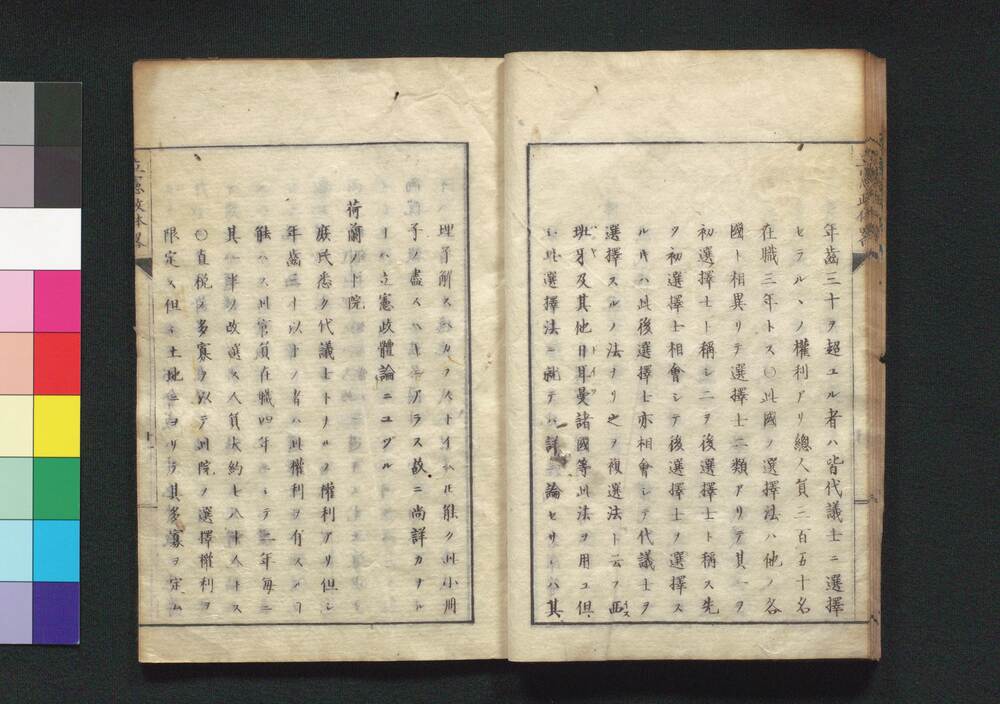 年齒三十ヲ超ユル者ハ皆代議士ニ選擇
セラルヽノ權利アリ總人員三百五十名
在職三年トス〇此國ノ選擇法ハ他ノ各
國ト相異リテ選擇士二類アリテ其一ヲ
初選擇士ト稱シ二ヲ後選擇士ト稱ス先
ツ初選擇士相會シテ後選擇士ヲ選擇ス
ル片ハ此後選擇士亦相會シテ代議士ヲ
選擇スルノ法ナリ之ヲ複選法ト云フ西
班牙及其他日耳曼諸國等此法ヲ用ユ但
シ此選擇法ニ就テハ詳ニ論セサレハ其
理ヲ解ス
能ク此小冊
子ノ盡スヘキニアラス故ニ尚詳カナル
ハ立憲政體論ニユヅル
荷蘭ノ下院
庶民悉ク代議士トナルノ權利アリ但シ
年齒三十以下ノ者ハ此權利ヲ有スル
能ハス此官員在職四年ニシテ二年毎ニ
其半ヲ改選ス人員大約七八十人トス
〇直税ノ多寡ヲ以テ此院ノ選擇權利ヲ
限定ス但シ土地ニヨリテ其多寡ヲ定ム
立憲政体略
十一